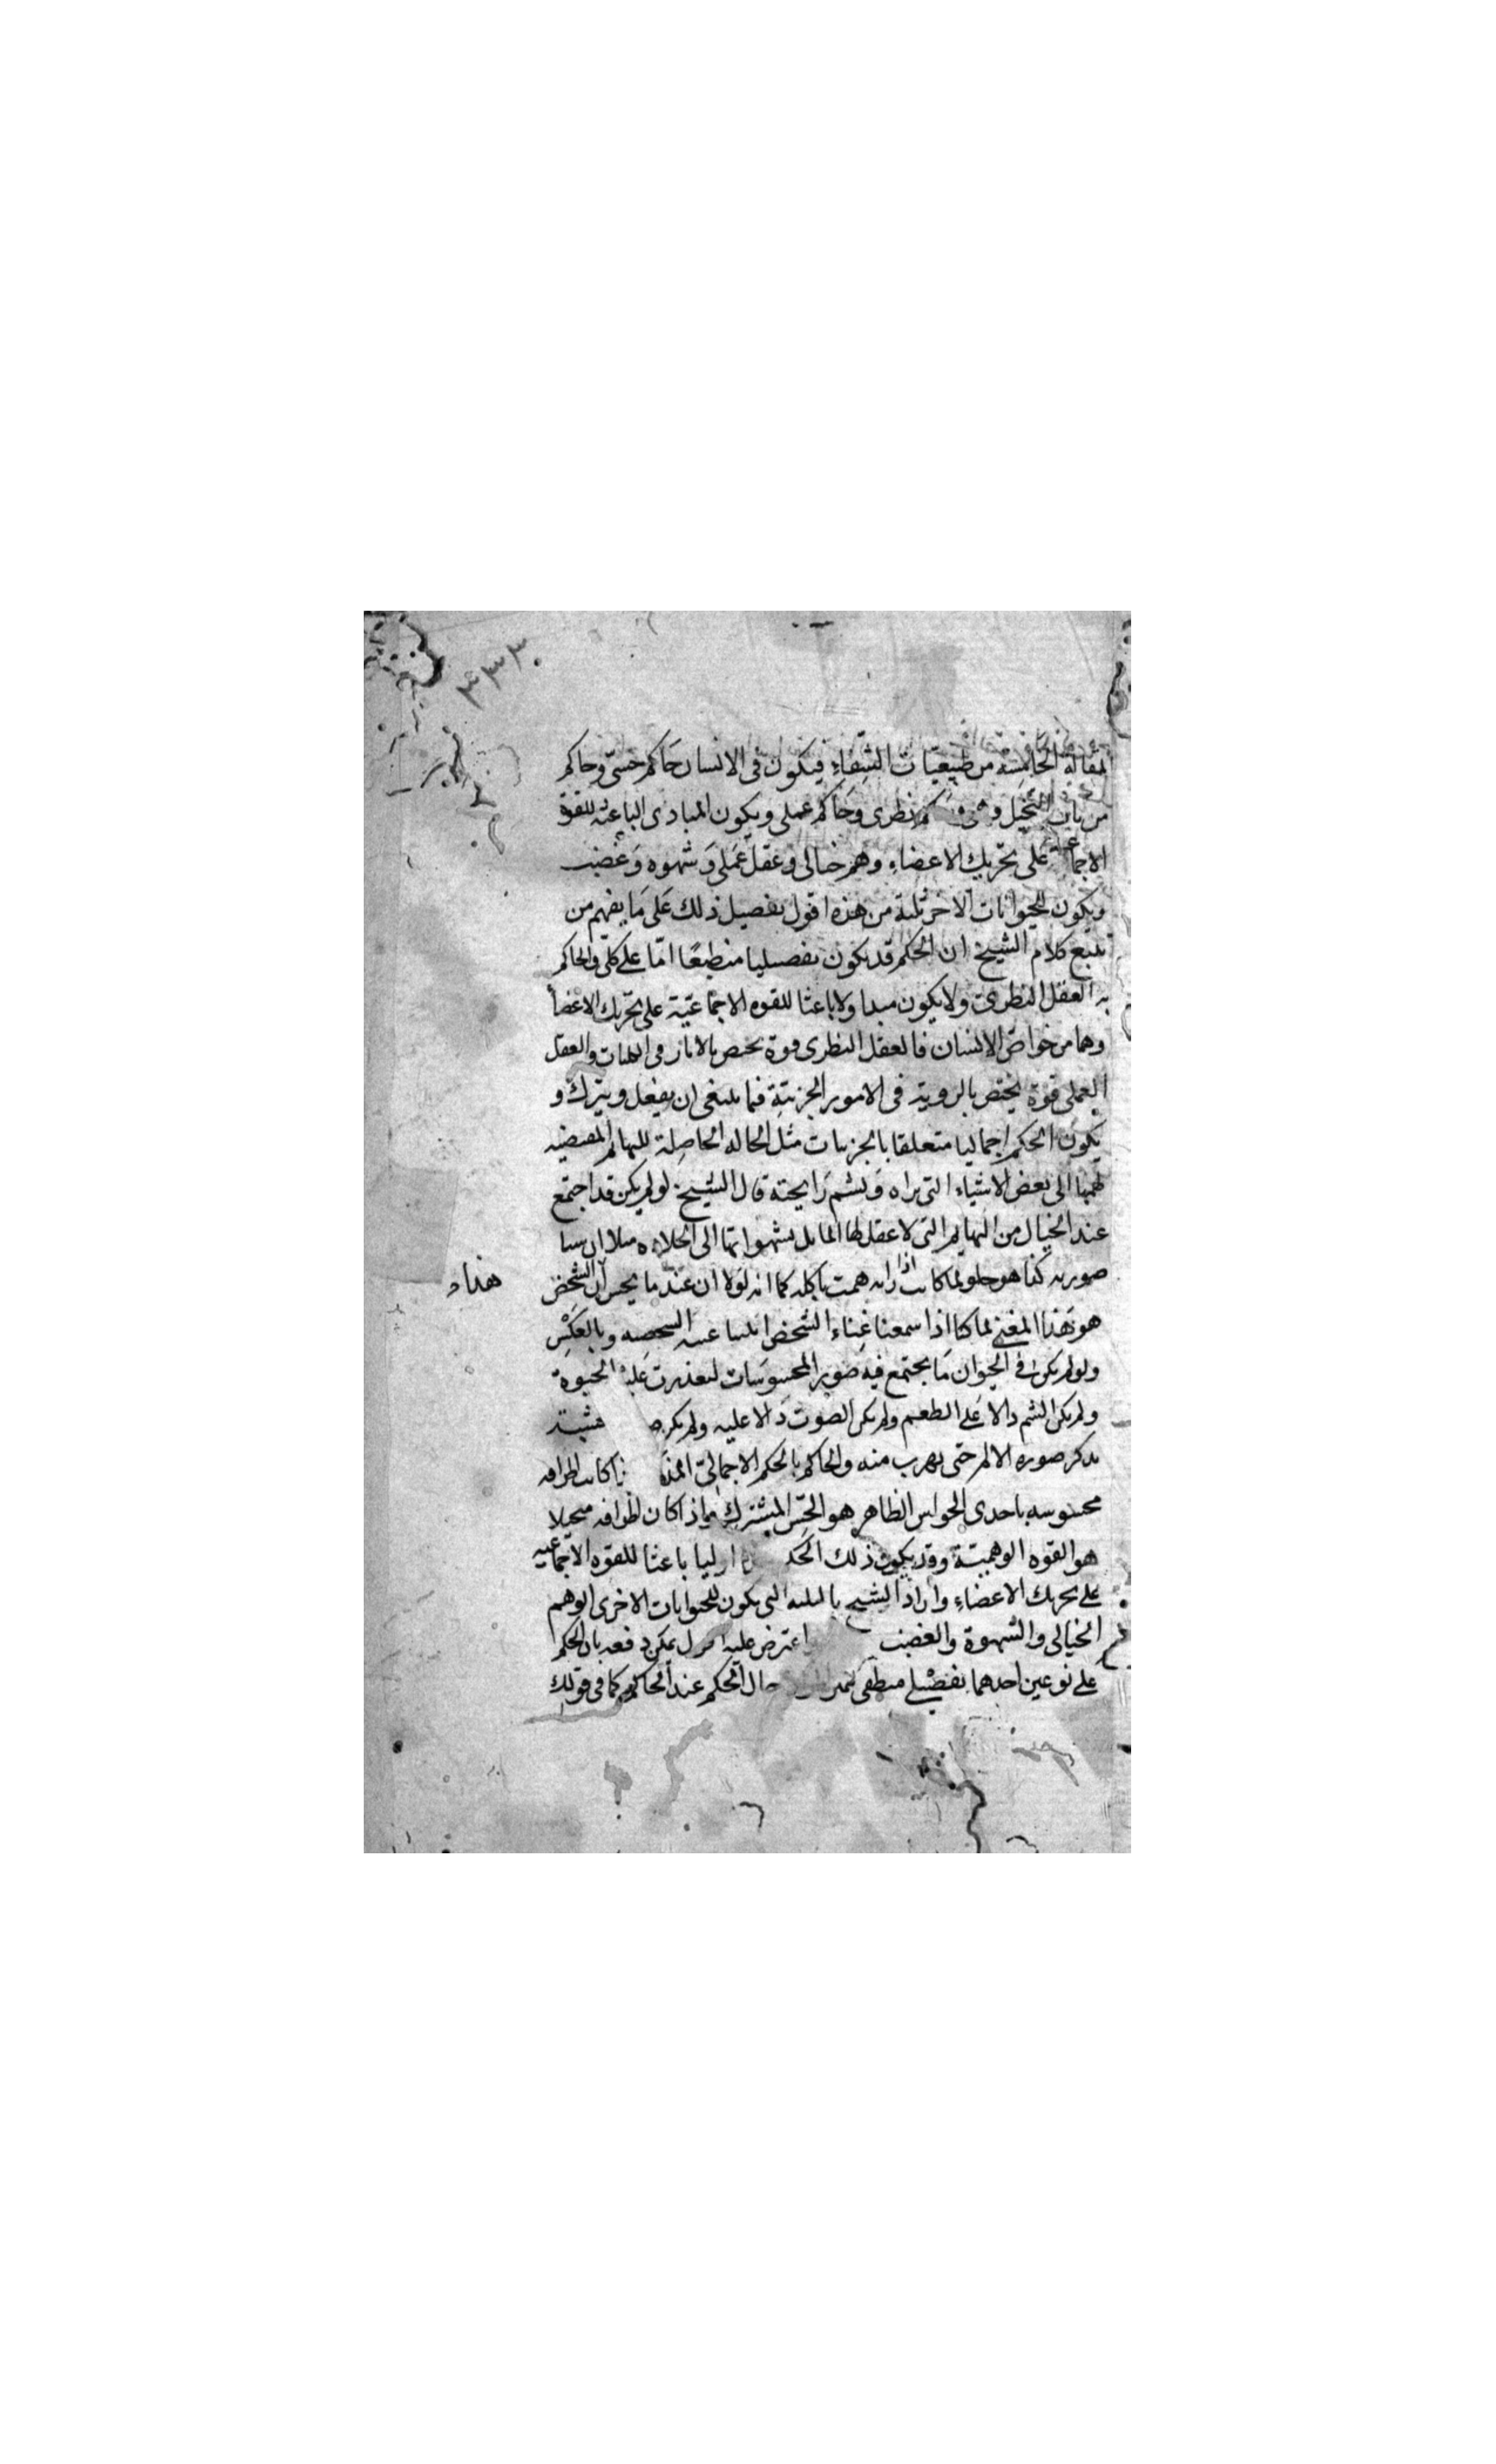 ٣٣٣
المقالة الخامسة من طبيعيات الشفاء فيكون في الانسان حاكم حسي وحاكم
من باب التخيل وهمي نظري وحاكم عملي ويكون المبادي الباعثة للقوة
على تحريك الاعضاء وهم خيالي وعقل عملي وشهوه وغضب
ويكون للحيوانات الاخر ثلثة من هذه اقول تفصيل ذلك على ما يفهم من
تتبع كلام الشيخ ان الحكم قد يكون تفصيليا منطبعا اما على كلي والحاكم
به العقل النظري ولا يكون مبدا ولا باعثا للقوه الاجماعية على تحريك الاعضاء
وهما من خواص الانسان فالعقل النظري قوة تختص بالاراء في الكليات والعقل
العملي قوة يختص بالروية في الامور الجزئية فيما ينبغي ان يفعل ويترك و
يكون الحكم اجماليا متعلقا بالجزييات مثل الحاله الحاصلة للبهايم المفضيه
لهمها الى بعض الاشياء التي براه ويشم رايحته قال الشيخ لو لم يكن قد اجتمع
عند الخيال من البهايم التي لا عقل لها المايل بشهواتها الى الحلاوه مثلا ان شيا
صورته كذا هو حلو لما كانت اذا راته همت باكله كما انه لولا ان عندما يحس ان الشخص
هذاء
هو بهذا المغني لما كنا اذا سمعنا غناء الشخص اثبتنا عينه الشخصيه وبالعكس
ولو لم يكن في الحيوان ما يجتمع فيه صور المحسوسات لتعذرت عليه الحيوة
ولم يكن الشم دالا على الطعم ولم يكن الصوت دالا عليه ولم يكن خشبة
يذكر صوره الالم حتى يهرب منه والحاكم بالحكم الاجمالي كانت اطرافه
محسوسه باحدى الحواس الظاهر هو الحس المشترك واذا كان اطرافه متخيلا
هو القوه الوهمية وقد يكون ذلك باعثا للقوه الاجماعيه
على تحريك الاعضاء واراد الشيخ بالثلثه التي يكون للحيوانات الاخرى الوهم
الخيالي والشهوة والغضب اعترض عليه اقول يمكن دفعه بان الحكم
على نوعين احدهما تفضيلي منطقي حال الحكم عند الحاكم كما في قولك